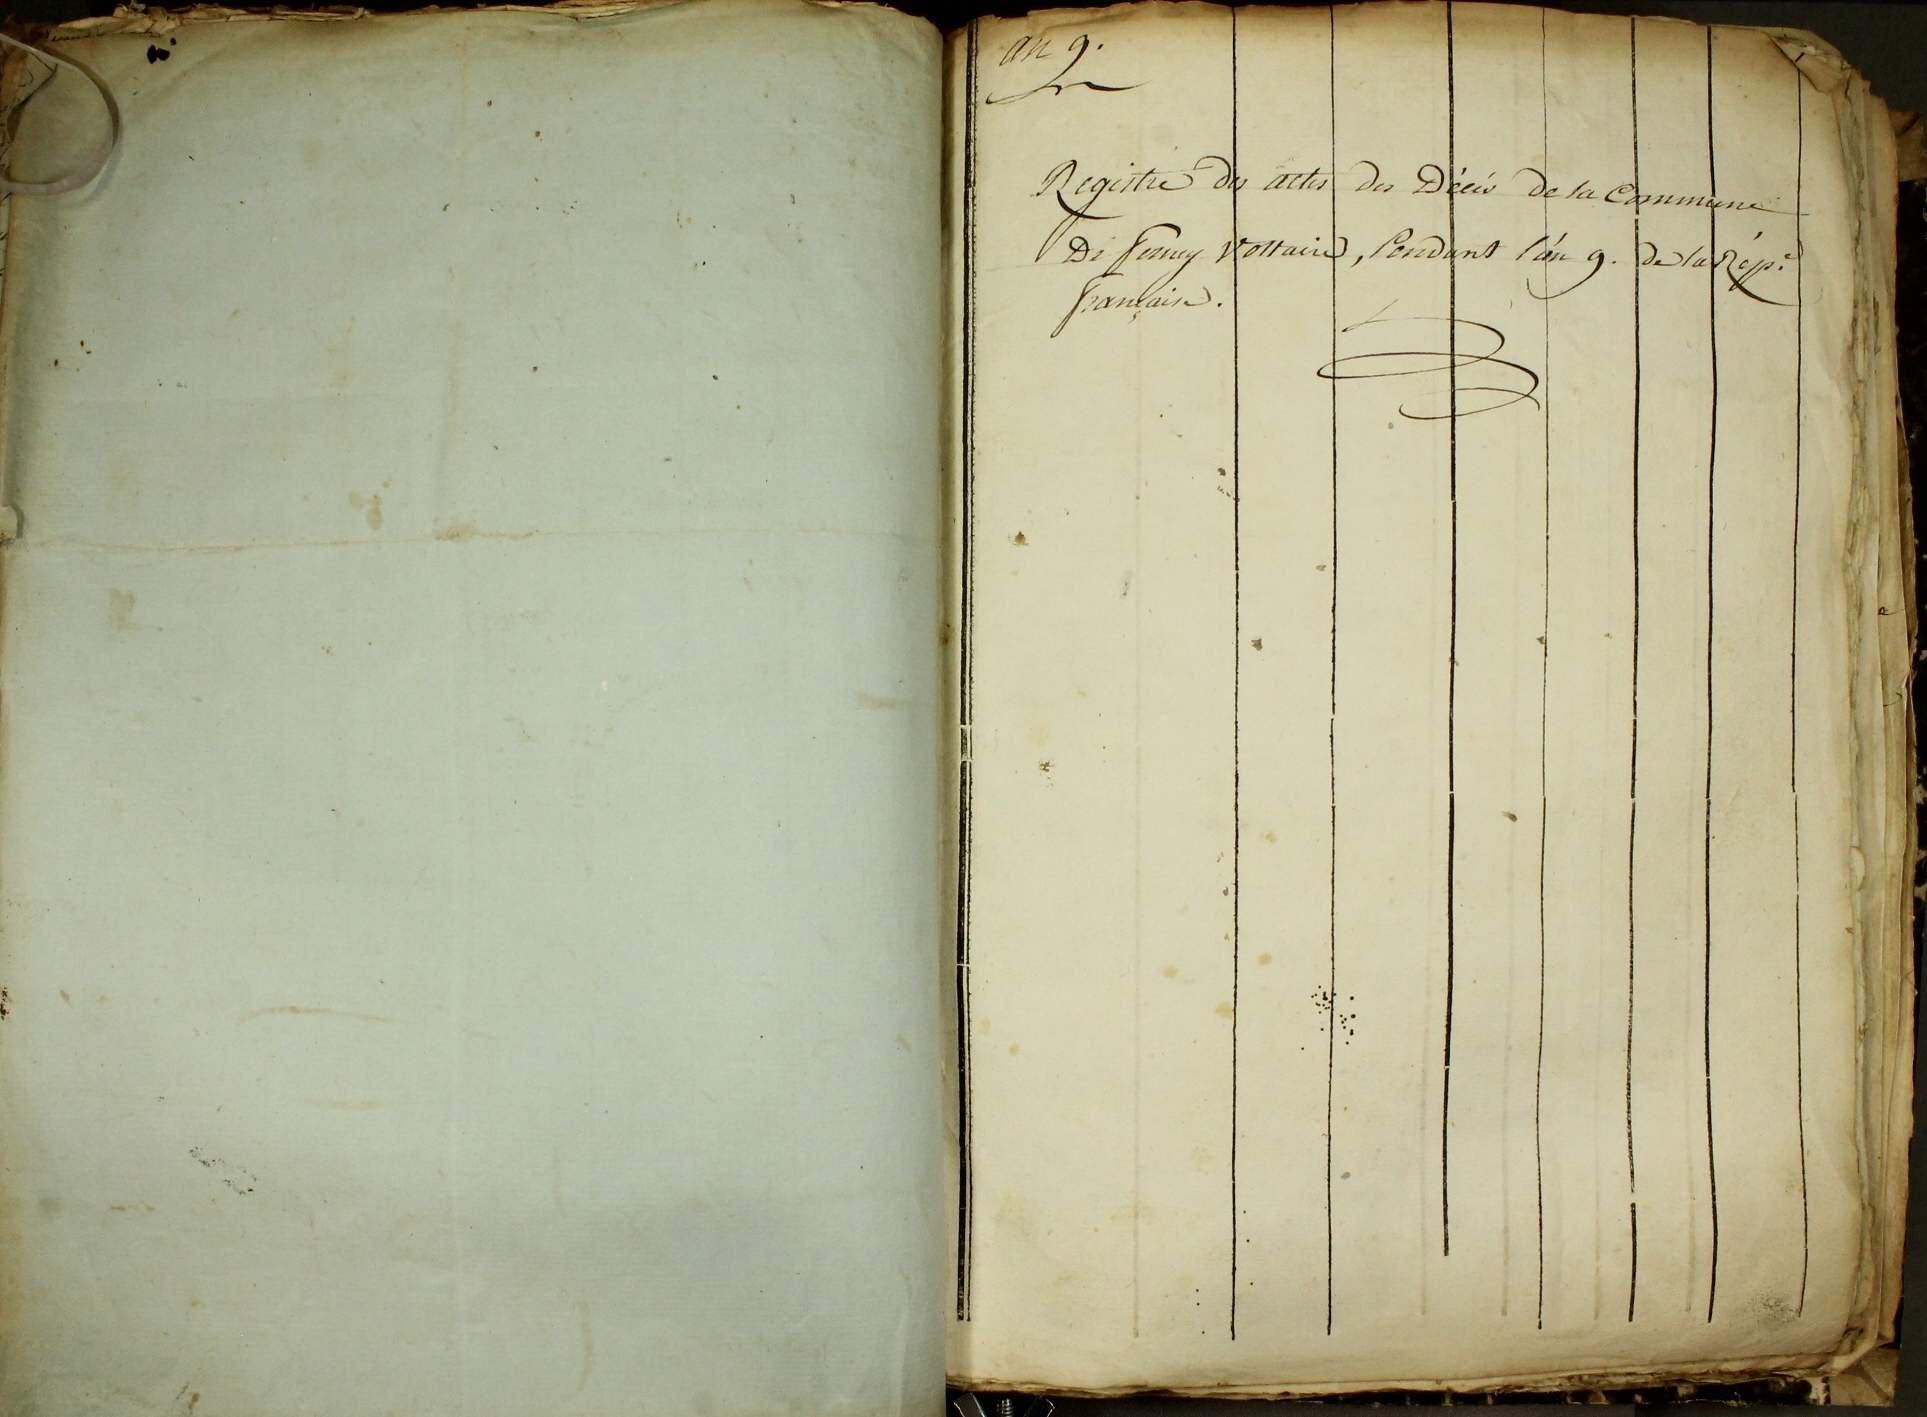 an 9.
Registre des actes des Décès de la Commune
De ferney Voltaire, Pendant l'an 9. de la Rép.e
française.